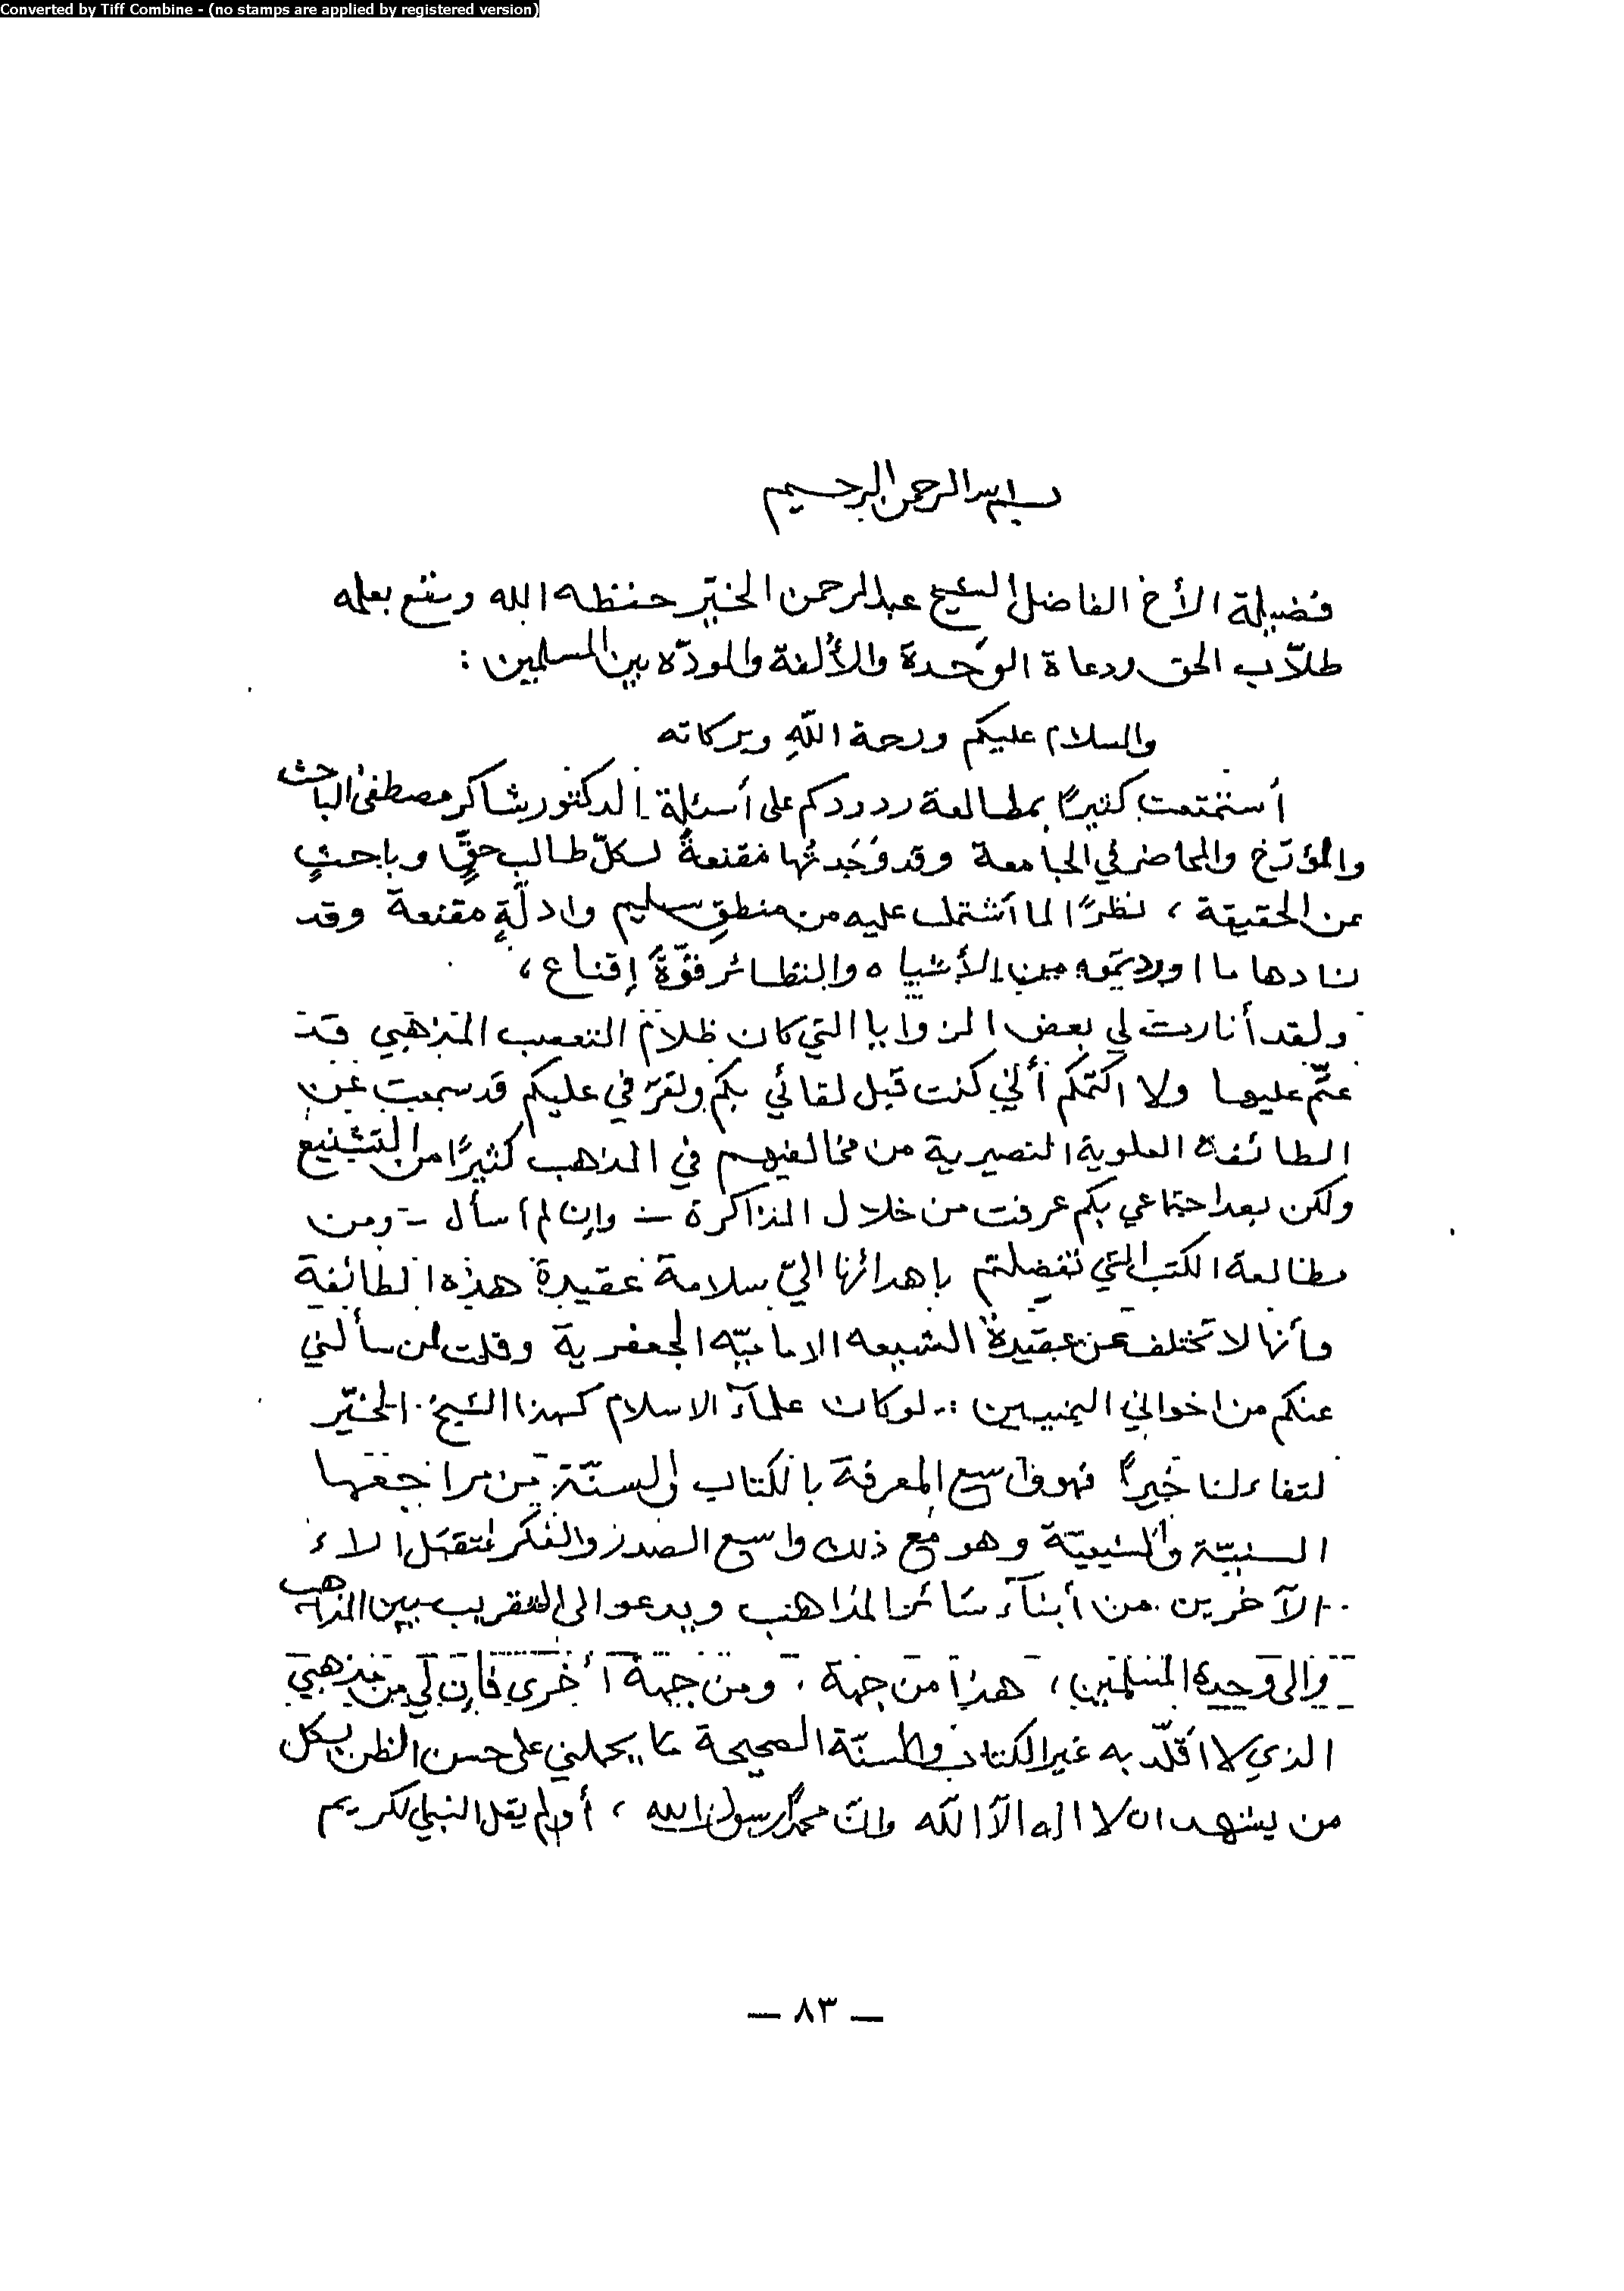 Converted by Tiff Combine - (no stamps are applied by registered version)
بسم الله الرحمن الرحيم
فضيلة الأخ الفاضل الشيخ عبد الرحمن الخيّر حفظه الله ونفع بعلمه
طلّاب الحق ودعاة الوَحدة والأُلفة والمودّه بين المسلمين :
والسلام عليكم ورحمة اللّهِ وبركاته
أستمتعت كثيرًا بمطالعة ردودكم على أسئلة الدكتور شاكر مصطفى الباحث
والمؤرّخ والمحاضر في الجامعة وقد وَجَدتُها مُقنعةً لكلّ طالب حقٍّ وباحثٍ
عن الحقيقة ، نظرًا لما أشتملت عليه من منطقٍ سليم وادلّةٍ مقنعة وقد
زادها ما اوردتموه من الأشباه والنظائر قوّةً إقناع ،
ولقد أنارت لي بعض الزوايا التي كان ظلام التعصب المذهبي قد
عتّم عليها ولا اكتمكم أني كنت قبل لقائي بكم وتعرّفي عليكم قد سمعت عن
الطائفة العلوية النصيرية من مخالفيهم في المذهب كثيرًا من التشنيع
ولكن بعد اجتماعي بكم عرفت من خلال المذاكرة – وإن لم أسأل – ومن
مطالعة الكتب التي تفضلتم بإهدائها اليّ سلامة عقيدة هذه الطائفة
وأنها لا تختلف عن عقيدة الشيعه الاماميّه الجعفرية وقلت لمن سألني
عنكم من اخواني اليمنيين :- لو كان علمآء الاسلام كهذا الشيخ الخيّر
لتفاءلنا خيرًا فهو واسع المعرفة بالكتاب والسنّة من مراجعها
السنيّة والشيعيّة وهو مع ذلك واسع الصدر والفكر لاراء
الآخرين من أبنآء سائر المذاهب ويدعو الى التقريب بين المذاهب
والى وحدة المسلمين ، هذا من جهة ، ومن جهة أخرى فإن لي من مذهبي
الذي لا أقلّد به غير الكتاب والسنّة الصحيحة ما يحملني على حسن الظن بكل
من يشهد ان لا اله الّا اللّه وانّ محمدًا رسول الله ، أو لم يقل النبي الكريم
— ٨٣ —